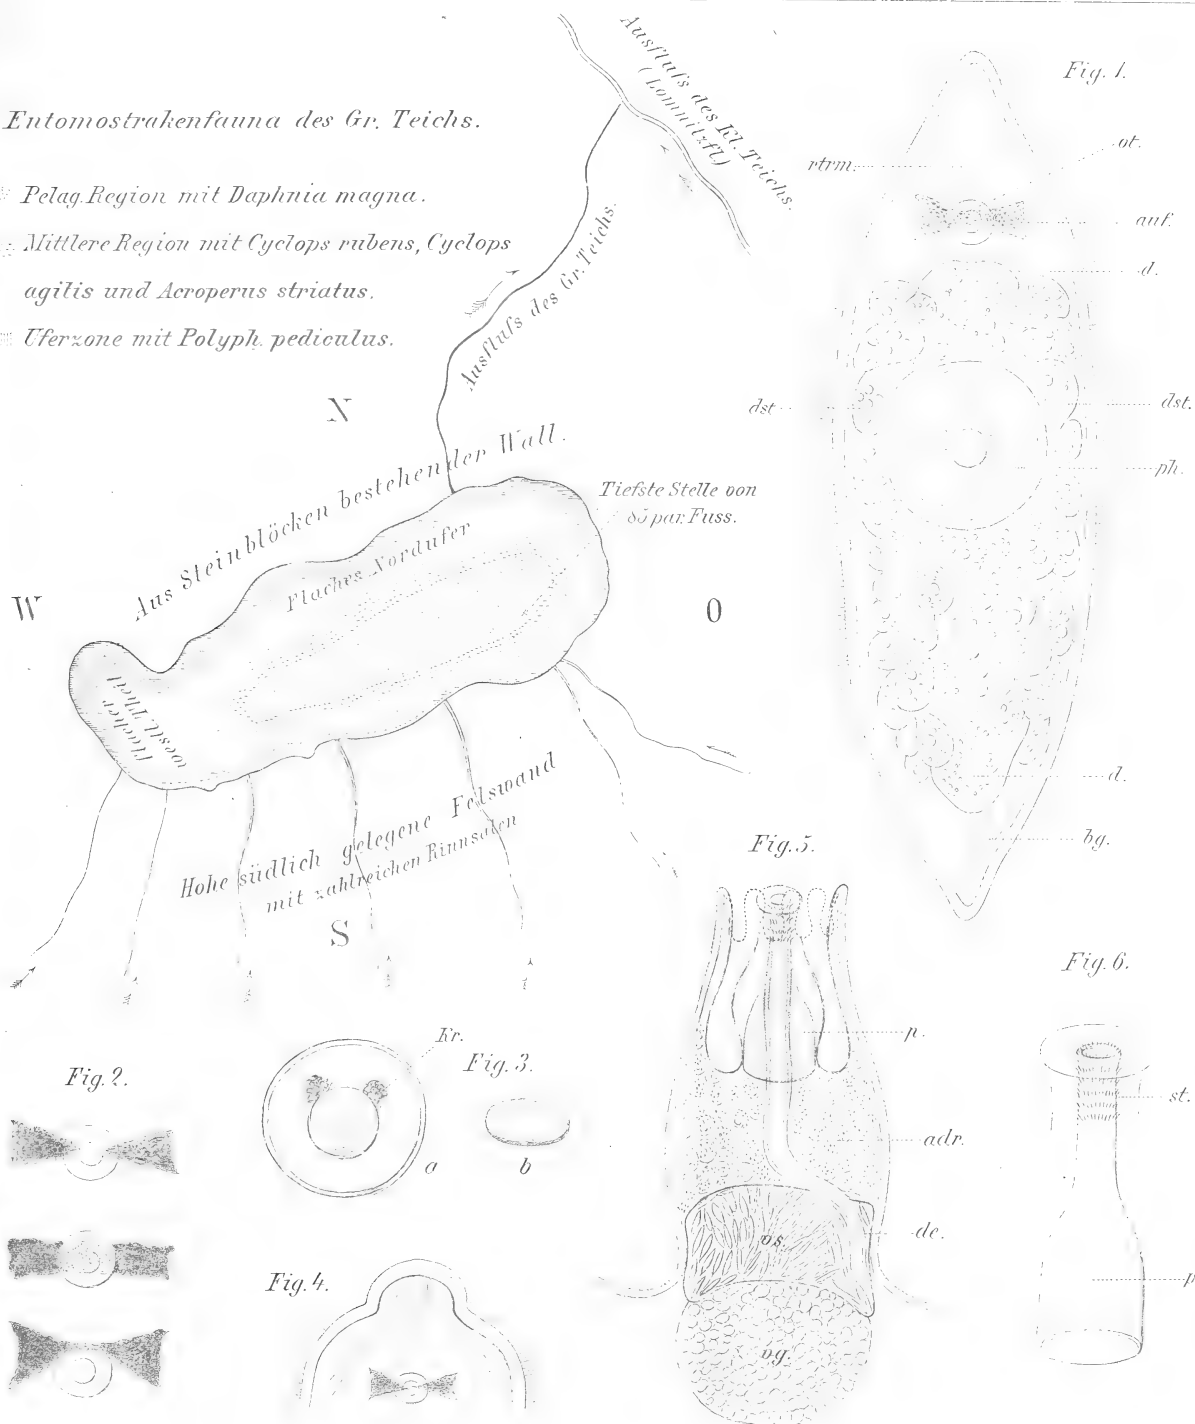 Entomostrakenfauna des Gr. Teichs.
Pelag. Region mit Daphnia magna.
Mittlere Region mit Cyclops rubens, Cyclops
agilis und Acroperus striatus.
Uferzone mit Polyph. pediculus.
Ausfluſs des Kl. Teichs.
(Lomnitzfl.)
Ausfluſs des Gr. Teichs.
N
Aus Steinblöcken bestehender Wall.
Tiefste Stelle von
85 par. Fuss.
Flaches Nordufer
W
O
Flacher
westl. Theil
Hohe südlich gelegene Felswand
mit zahlreichen Rinnsalen
S
Fig. 1.
rtrm.
ot.
auf.
d.
dst.
dst.
ph.
d.
bg.
Fig. 2.
Kr.
Fig. 3.
a
b
Fig. 4.
Fig. 5.
p.
adr.
de.
vs.
vg.
Fig. 6.
st.
p